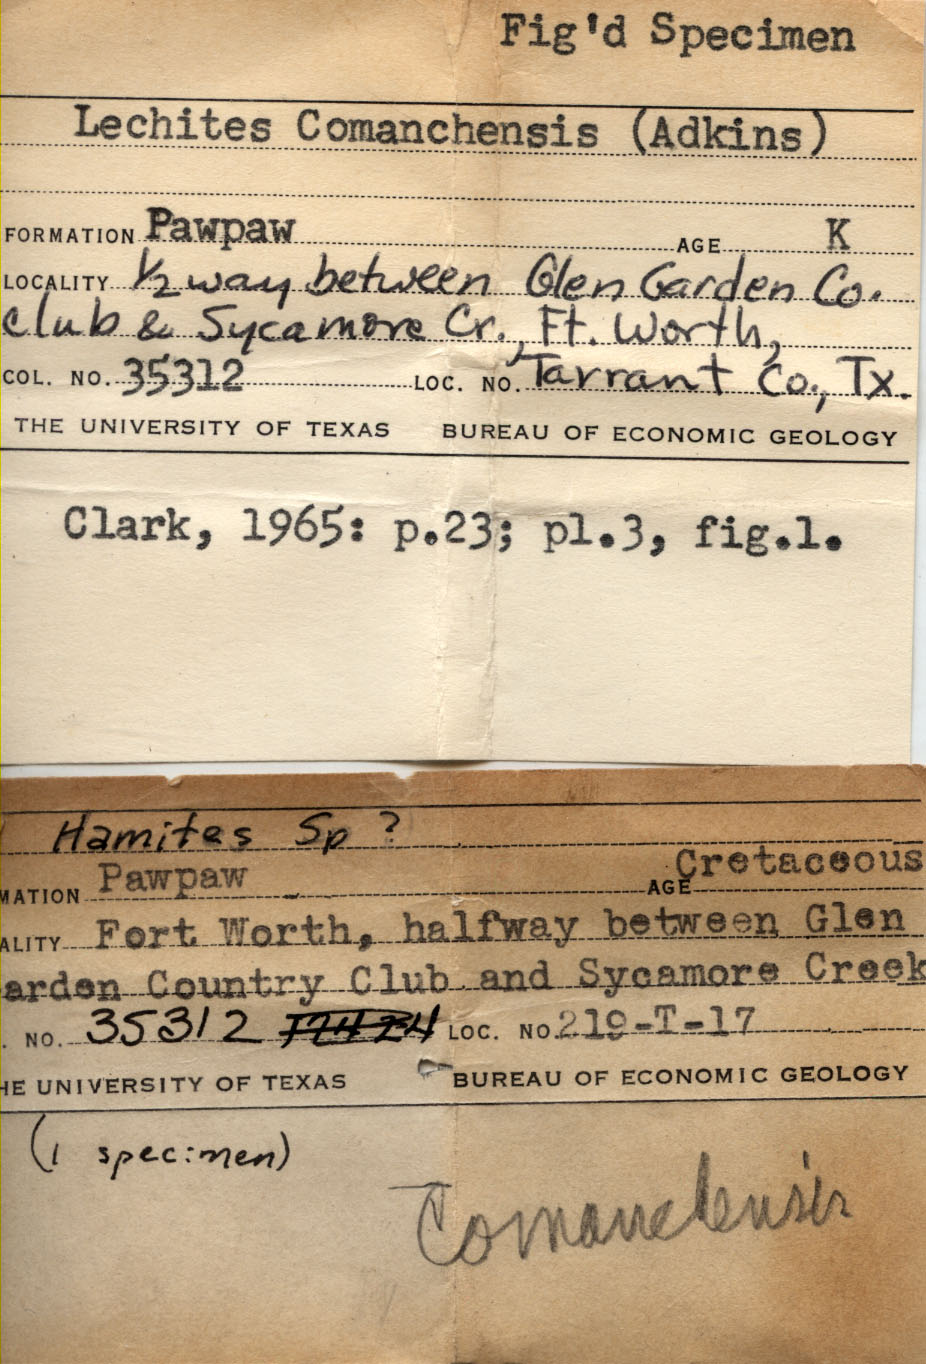 Fig'd Specimen
Lechites Comanchensis (Adkins)
FORMATION Pawpaw AGE K
LOCALITY ½ way between Glen Garden Co.
Club & Sycamore Cr., Ft. Worth,
COL. NO. 35312 LOC. NO. Tarrant Co., Tx.
THE UNIVERSITY OF TEXAS BUREAU OF ECONOMIC GEOLOGY
Clark, 1965: p.23; pl.3, fig.1.
Hamites Sp ?
MATION Pawpaw AGE Cretaceous
ALITY Fort Worth, halfway between Glen
arden Country Club and Sycamore Creek
. NO. 35312 LOC. NO. 219-T-17
HE UNIVERSITY OF TEXAS BUREAU OF ECONOMIC GEOLOGY
(1 specimen)
Comanchensis